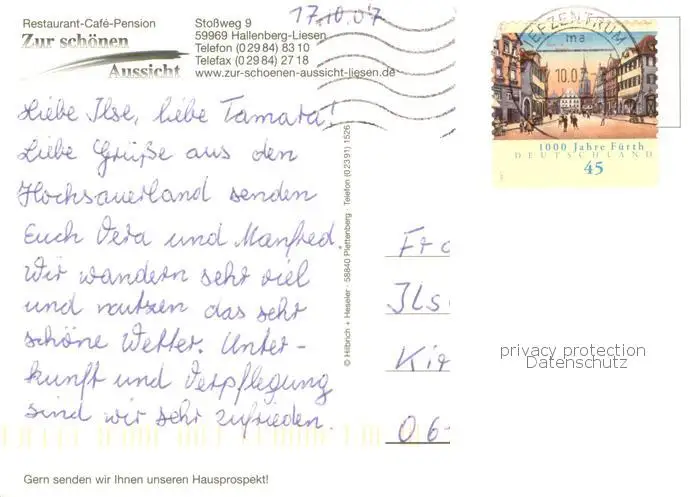 Restaurant-Café-Pension
Zur schönen
Aussicht
Stoßweg 9
59969 Hallenberg-Liesen
Telefon (0 29 84) 83 10
Telefax (0 29 84) 27 18
www.zur-schoenen-aussicht-liesen.de
17.10.07
Liebe Ilse, liebe Tamara!
Liebe Grüße aus den
Hochsauerland senden
Euch Vera und Manfred.
Wir wandern sehr viel
und nutzen das sehr
schöne Wetter. Unter-
kunft und Verpflegung
sind wir sehr zufrieden.
Gern senden wir Ihnen unseren Hausprospekt!
© Hilbrich + Heseler 58840 Plettenberg Telefon (0 23 91) 1526
EFZENTRUM
ma
10.07
1000 Jahre Fürth
DEUTSCHLAND
45
Fr
Ils
Kir
06-
privacy protection
Datenschutz